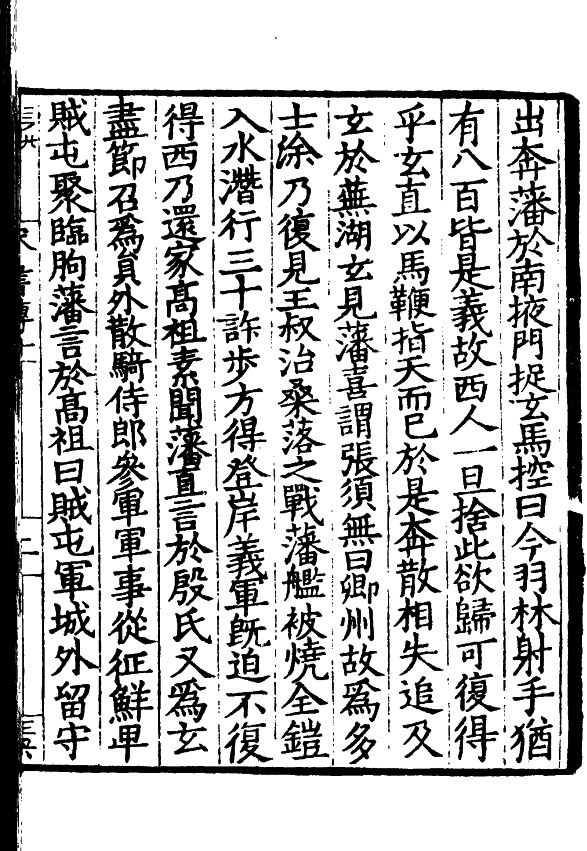 出奔藩於南掖門捉玄馬控曰今羽林射手猶
有八百皆是義故西人一旦捨此欲歸可復得
乎玄直以馬鞭指天而已於是奔散相失追及
玄於蕪湖玄見藩喜謂張須無曰卿州故爲多
士涂乃復見王叔治桑落之戰藩艦被燒全鎧
入水潛行三十許步方得登岸義軍旣迫不復
得西乃還家高祖素聞藩直言於殷氏又爲玄
盡節召爲貟外散騎侍郎叅軍軍事從征鮮卑
賊屯聚臨朐藩言於高祖曰賊屯軍城外留守